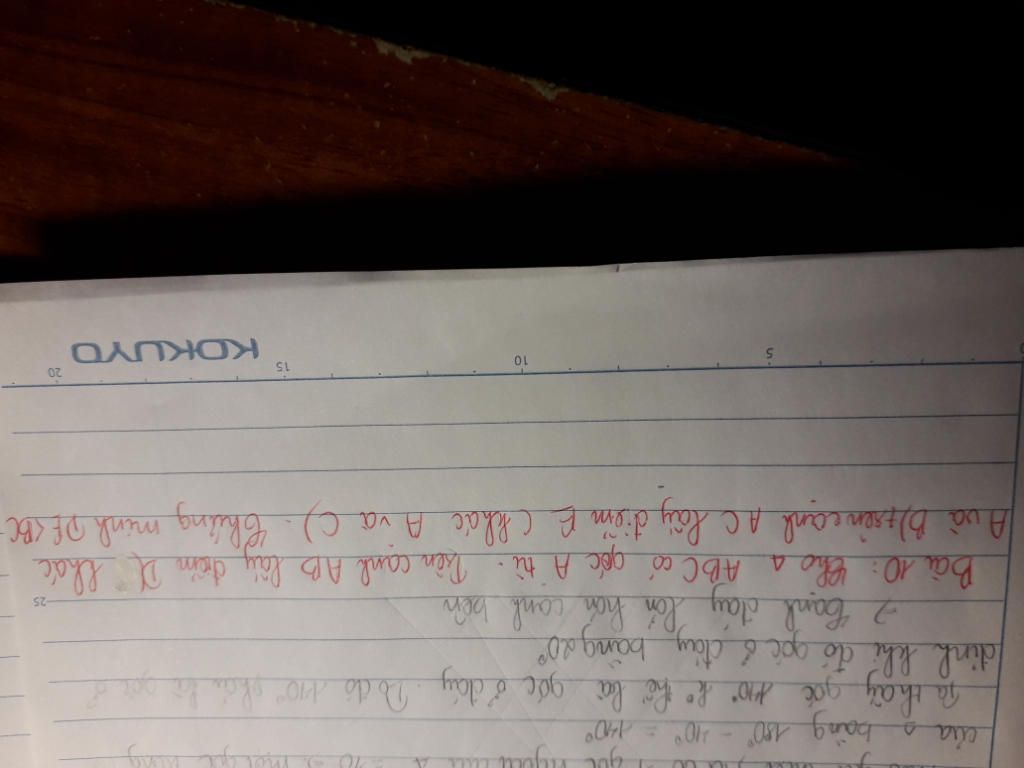 góc ngoài của Δ
của Δ bằng 180° - 40° = 140°
Ta thấy góc 140° k° thể là góc ở đáy. Do đó 140° phải là góc ở
đỉnh khi đó góc ở đáy bằng 20°
→ Cạnh đáy lớn hơn cạnh bên
25
Bài 10: Cho Δ ABC có góc A tù. Trên cạnh AB lấy điểm D( khác
A và B) trên cạnh AC lấy điểm E (khác A và C). Chứng minh DE<BC
5 10 15 20
KOKUYO